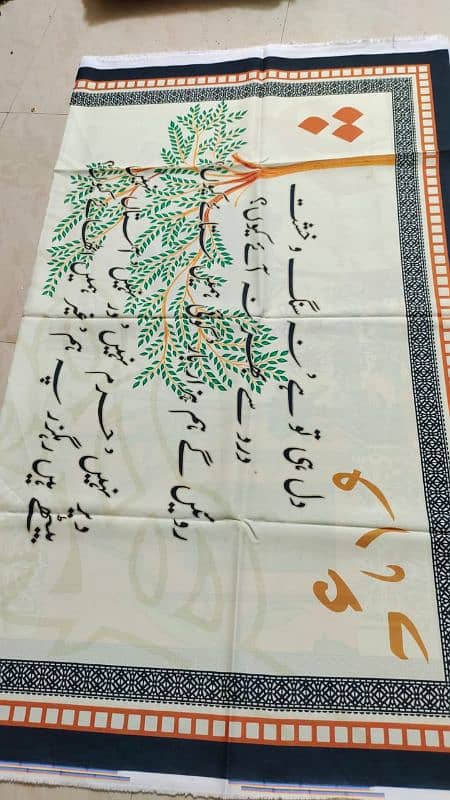 دل ہی تو ہے نہ سنگ و خشت
درد سے بھر نہ آئے کیوں؟
روئیں گے ہم ہزار بار کوئی ہمیں ستائے کیوں
دیر نہیں حرم نہیں در نہیں آستاں نہیں
بیٹھے ہیں رہگزر پہ ہم غیر ہمیں اٹھائے کیوں؟